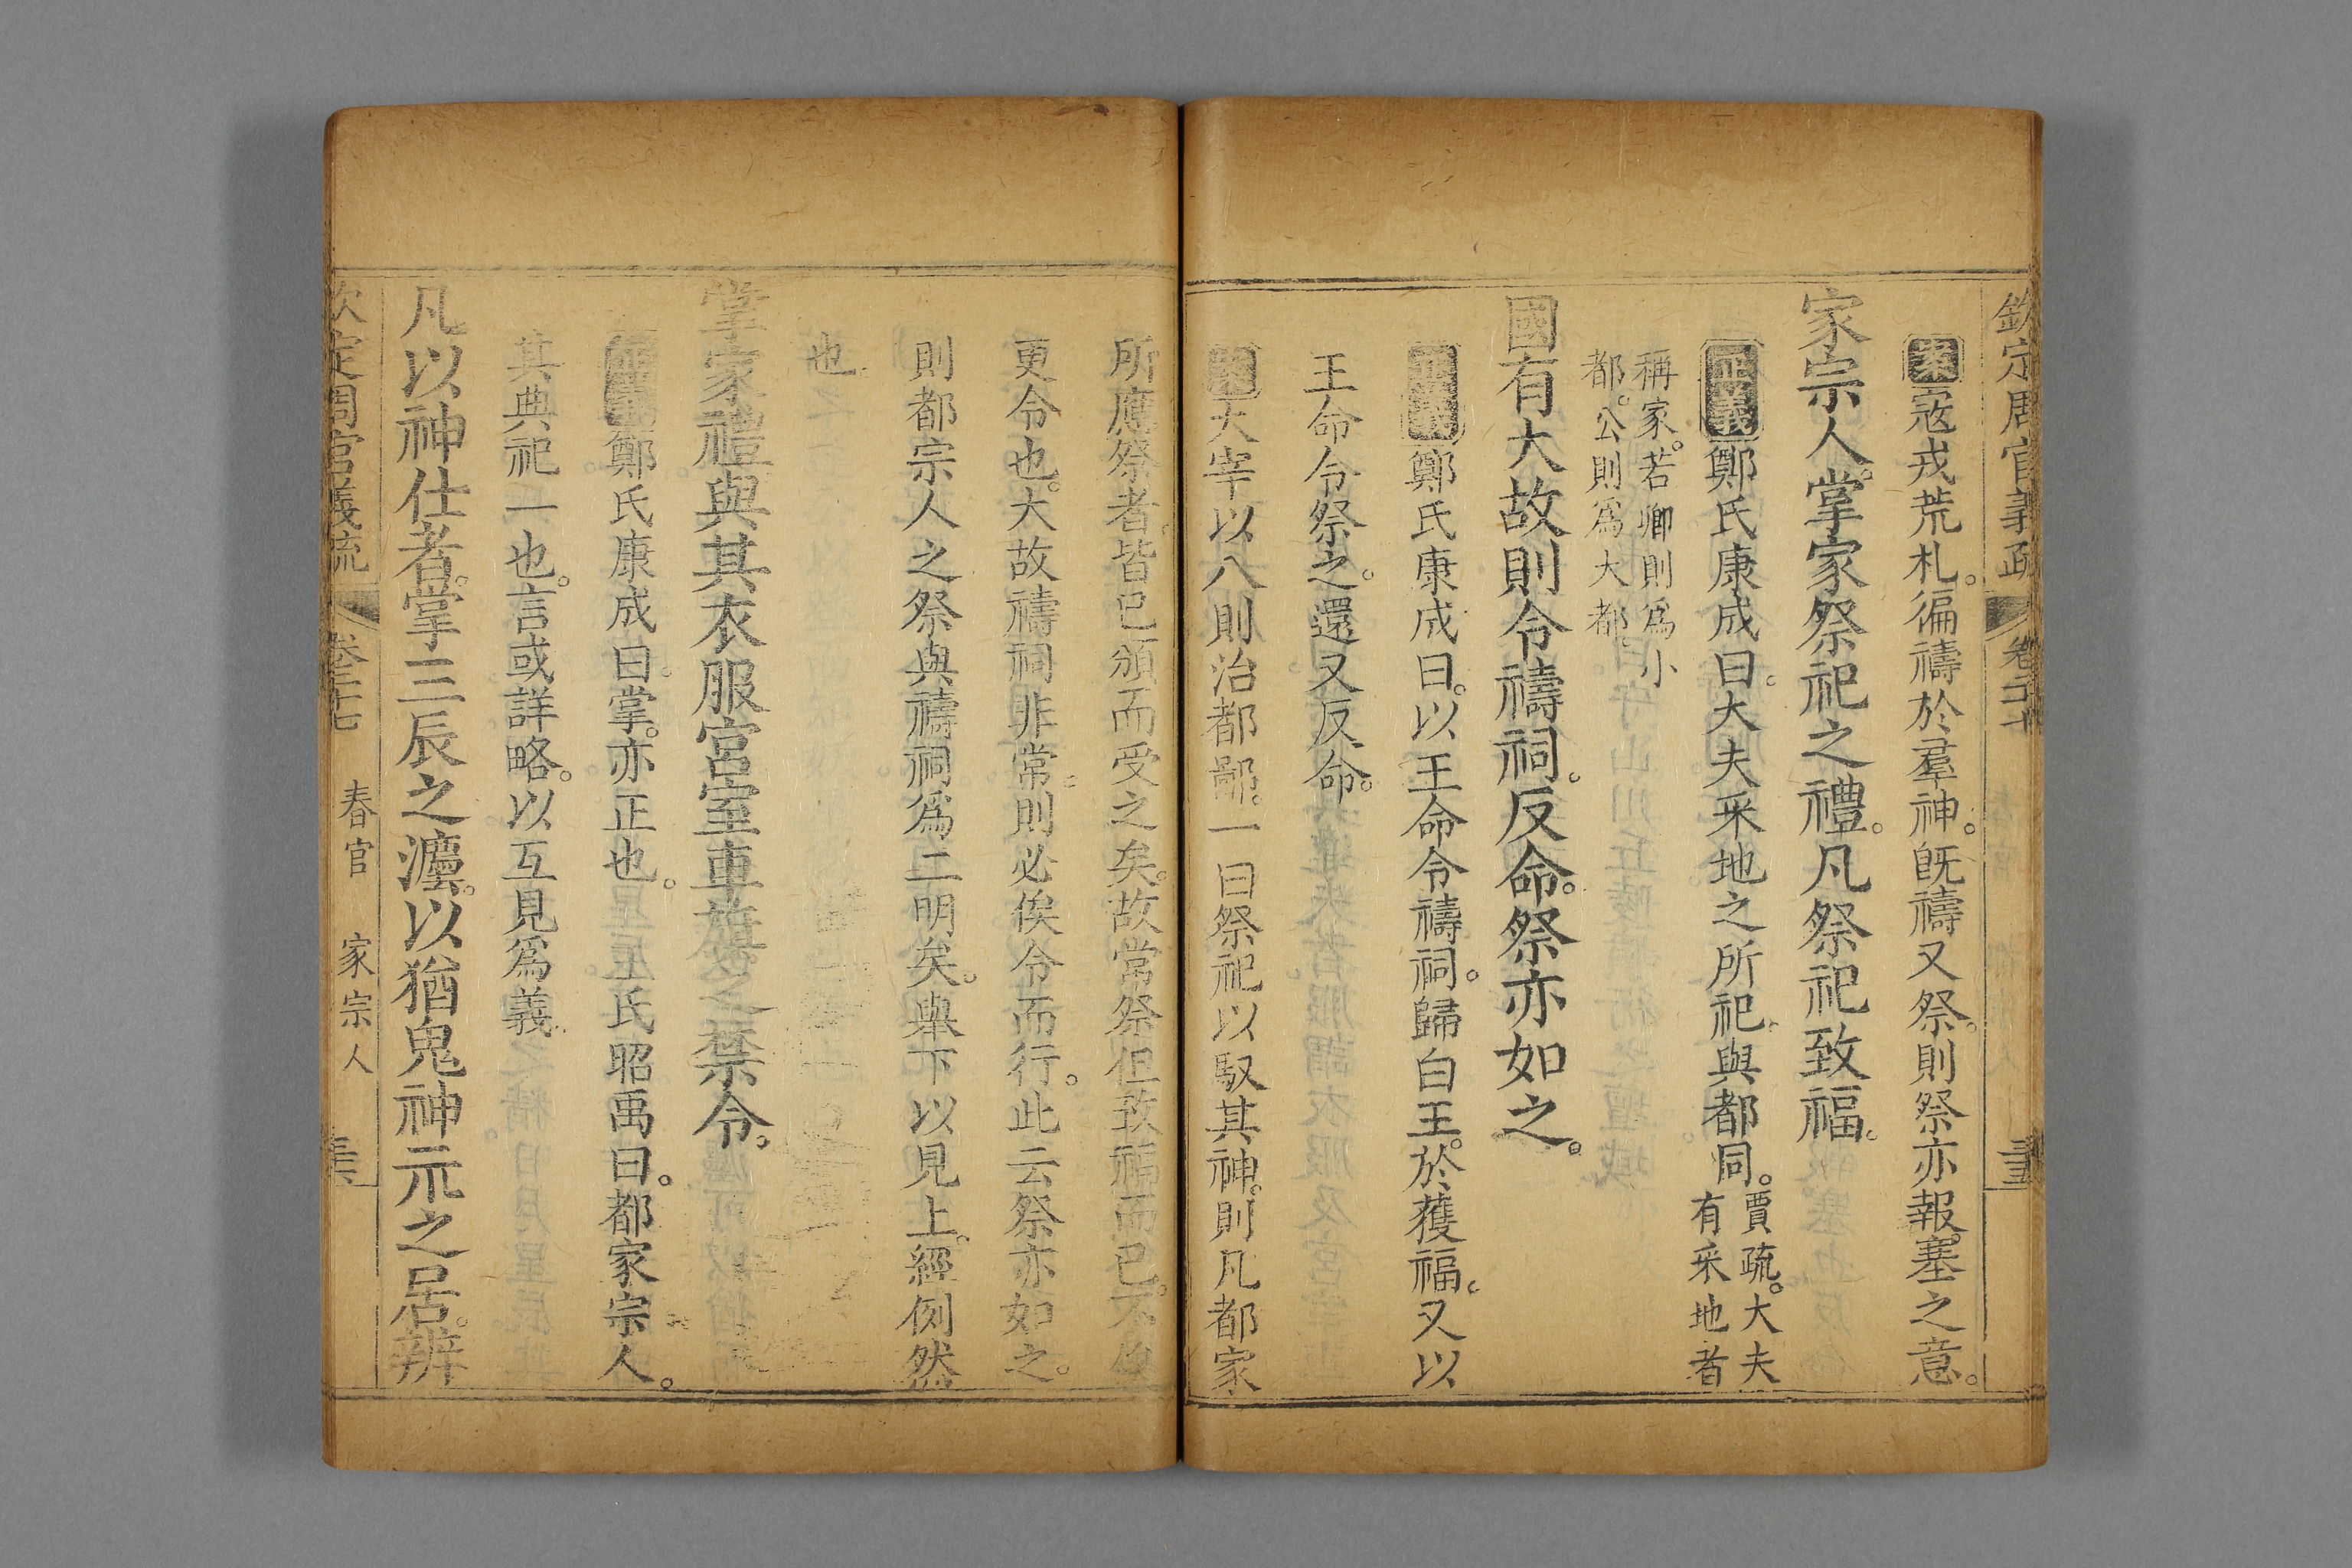 欽定周官義疏 卷二十七
案寇戎荒札。徧禱於羣神。旣禱又祭。則祭亦報塞之意。
家宗人。掌家祭祀之禮。凡祭祀致福。
正義鄭氏康成曰。大夫采地之所祀。與都同。賈疏。大夫有采地者
稱家。若卿則爲小
都。公則爲大都。
國有大故。則令禱祠。反命。祭亦如之。
正義鄭氏康成曰。以王命令禱祠。歸白王。於獲福。又以
王命令祭之。還又反命。
案大宰以八則治都鄙。一曰祭祀以馭其神。則凡都家
所應祭者。皆已頒而受之矣。故常祭但致福而已。不
更令也。大故禱祠非常。則必俟令而行。此云祭亦如之。
則都宗人之祭與禱祠爲二明矣。舉下以見上。經例然
也。
掌家禮與其衣服宮室車旗之禁令。
正義鄭氏康成曰。掌。亦正也。 王氏昭禹曰。都家宗人。
其典祀一也。言或詳略。以互見爲義。
凡以神仕者。掌三辰之灋。以猶鬼神示之居。辨
欽定周官義疏 卷二十七 春官 家宗人